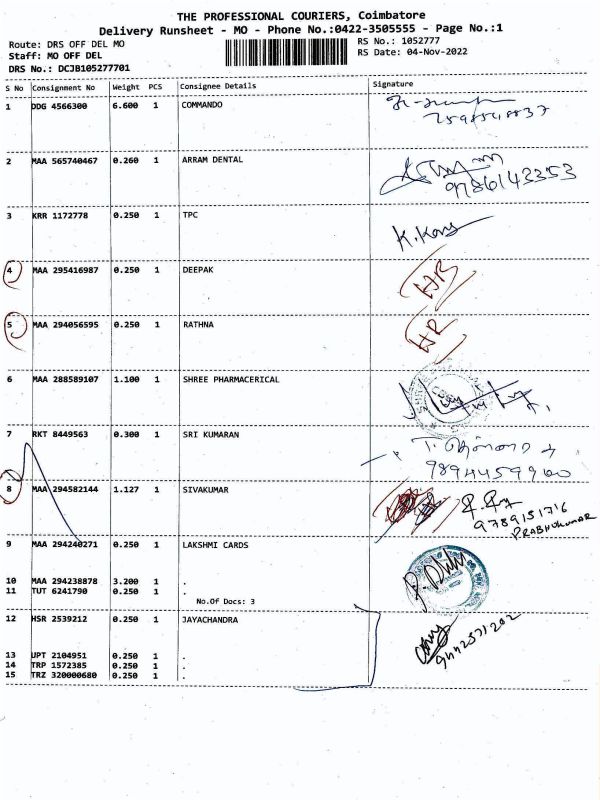 THE PROFESSIONAL COURIERS, Coimbatore
Delivery Runsheet - MO - Phone No.:0422-3505555 - Page No.:1
Route: DRS OFF DEL MO RS No.: 1052777
Staff: MO OFF DEL RS Date: 04-Nov-2022
DRS No.: DCJB105277701
S No Consignment No Weight PCS Consignee Details Signature
1 DDG 4566300 6.600 1 COMMANDO
2 MAA 565740467 0.260 1 ARRAM DENTAL
9786142353
3 KRR 1172778 0.250 1 TPC
K.Kany
4 MAA 295416987 0.250 1 DEEPAK
5 MAA 294056595 0.250 1 RATHNA
6 MAA 288589107 1.100 1 SHREE PHARMACERICAL
7 RKT 8449563 0.300 1 SRI KUMARAN
9894459900
8 MAA 294582144 1.127 1 SIVAKUMAR
9789151716
PRABHUKUMAR
9 MAA 294240271 0.250 1 LAKSHMI CARDS
10 MAA 294238878 3.200 1 .
11 TUT 6241790 0.250 1 .
No.Of Docs: 3
12 HSR 2539212 0.250 1 JAYACHANDRA
9442571202
13 UPT 2104951 0.250 1 .
14 TRP 1572385 0.250 1 .
15 TRZ 320000680 0.250 1 .